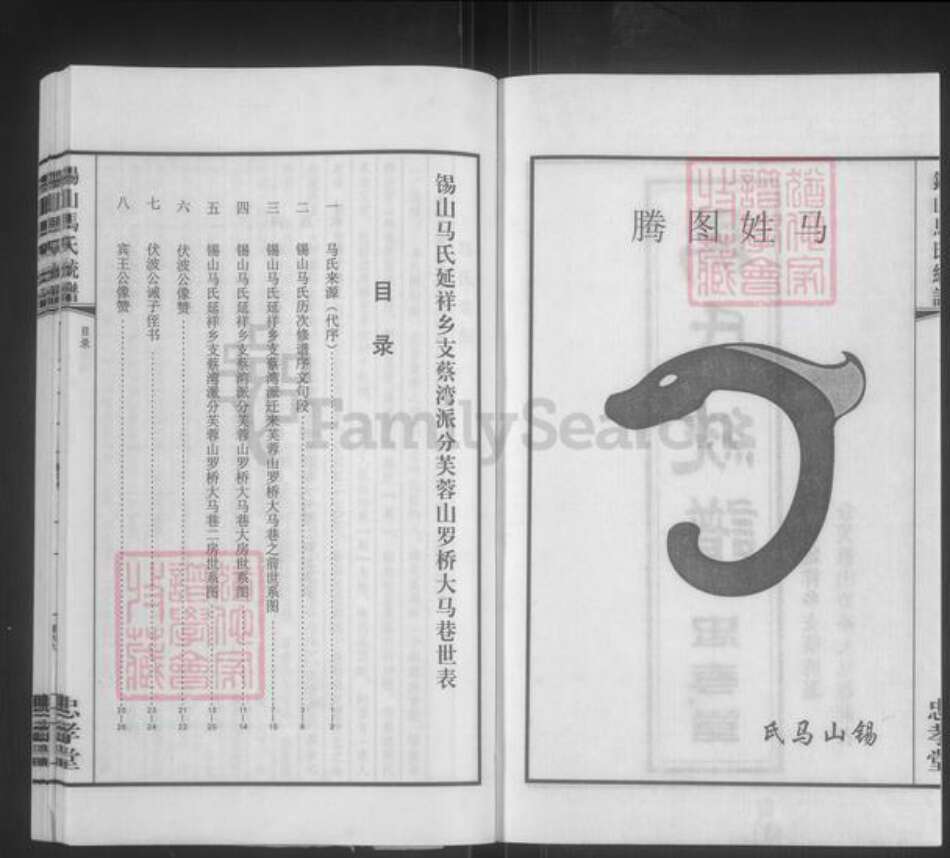 马姓图腾
锡山马氏
忠孝堂
锡山马氏延祥乡支蔡湾派分芙蓉山罗桥大马巷世表
目录
一 马氏来源（代序）
二 锡山马氏历次修谱序文句段
三 锡山马氏延祥乡支蔡湾派迁来芙蓉山罗桥大马巷之前世系图
四 锡山马氏延祥乡支蔡湾派分芙蓉山罗桥大马巷大房世系图
五 锡山马氏延祥乡支蔡湾派分芙蓉山罗桥大马巷二房世系图
六 伏波公像赞
七 伏波公诫子侄书
八 宾王公像赞
锡山马氏统谱
目录
忠孝堂
FamilySearch